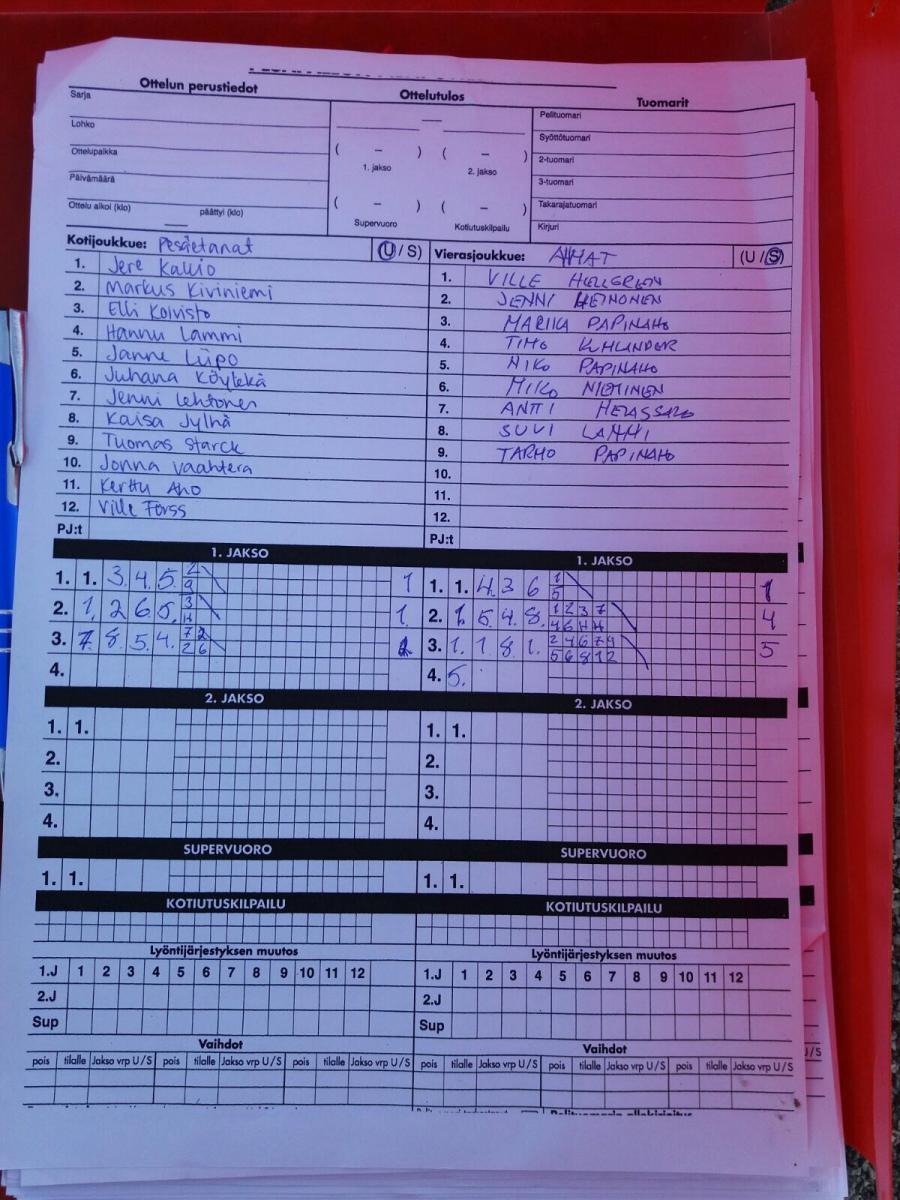 Ottelun perustiedot Ottelutulos Tuomarit
Sarja
Lohko
Ottelupaikka
Päivämäärä
Ottelu alkoi (klo) päättyi (klo)
( – ) ( – )
1. jakso 2. jakso
( – ) ( – )
Supervuoro Kotiutuskilpailu
Pelituomari
Syöttötuomari
2-tuomari
3-tuomari
Takarajatuomari
Kirjuri
Kotijoukkue: Pesäetanat (U / S)
1. Jere Kallio
2. Markus Kiviniemi
3. Elli Koivisto
4. Hannu Lammi
5. Janne Liipo
6. Juhana Köytekä
7. Jenni Lehtonen
8. Kaisa Jylhä
9. Tuomas Starck
10. Jonna Vaahtera
11. Kerttu Aho
12. Ville Forss
PJ:t
Vierasjoukkue: AHMAT (U / S)
1. VILLE HELLGREN
2. JENNI HEINONEN
3. MARIKA PAPINAHO
4. TIMO
5. NIKO PAPINAHO
6. MIKO NIEMINEN
7. ANTTI
8. SUVI LAMMI
9. TARMO PAPINAHO
10.
11.
12.
PJ:t
1. JAKSO
1. 1. 3. 4. 5. 2 1
9
2. 1. 2 6 5. 3 1.
3. 7. 8. 5. 4. 7 2
2 6
4.
1. JAKSO
1. 1. 4. 3 6 1 1
5
2. 1. 5. 4. 8. 1 2 3 7 4
3. 1. 1 8 1. 2 4 6 7 9 5
5 6 8 12
4. 5.
2. JAKSO
1. 1.
2.
3.
4.
2. JAKSO
1. 1.
2.
3.
4.
SUPERVUORO SUPERVUORO
1. 1. 1. 1.
KOTIUTUSKILPAILU KOTIUTUSKILPAILU
Lyöntijärjestyksen muutos Lyöntijärjestyksen muutos
1.J 1 2 3 4 5 6 7 8 9 10 11 12 1.J 1 2 3 4 5 6 7 8 9 10 11 12
2.J 2.J
Sup Sup
Vaihdot Vaihdot
pois tilalle Jakso vrp U/S pois tilalle Jakso vrp U/S pois tilalle Jakso vrp U/S pois tilalle Jakso vrp U/S pois tilalle Jakso vrp U/S pois tilalle Jakso vrp U/S